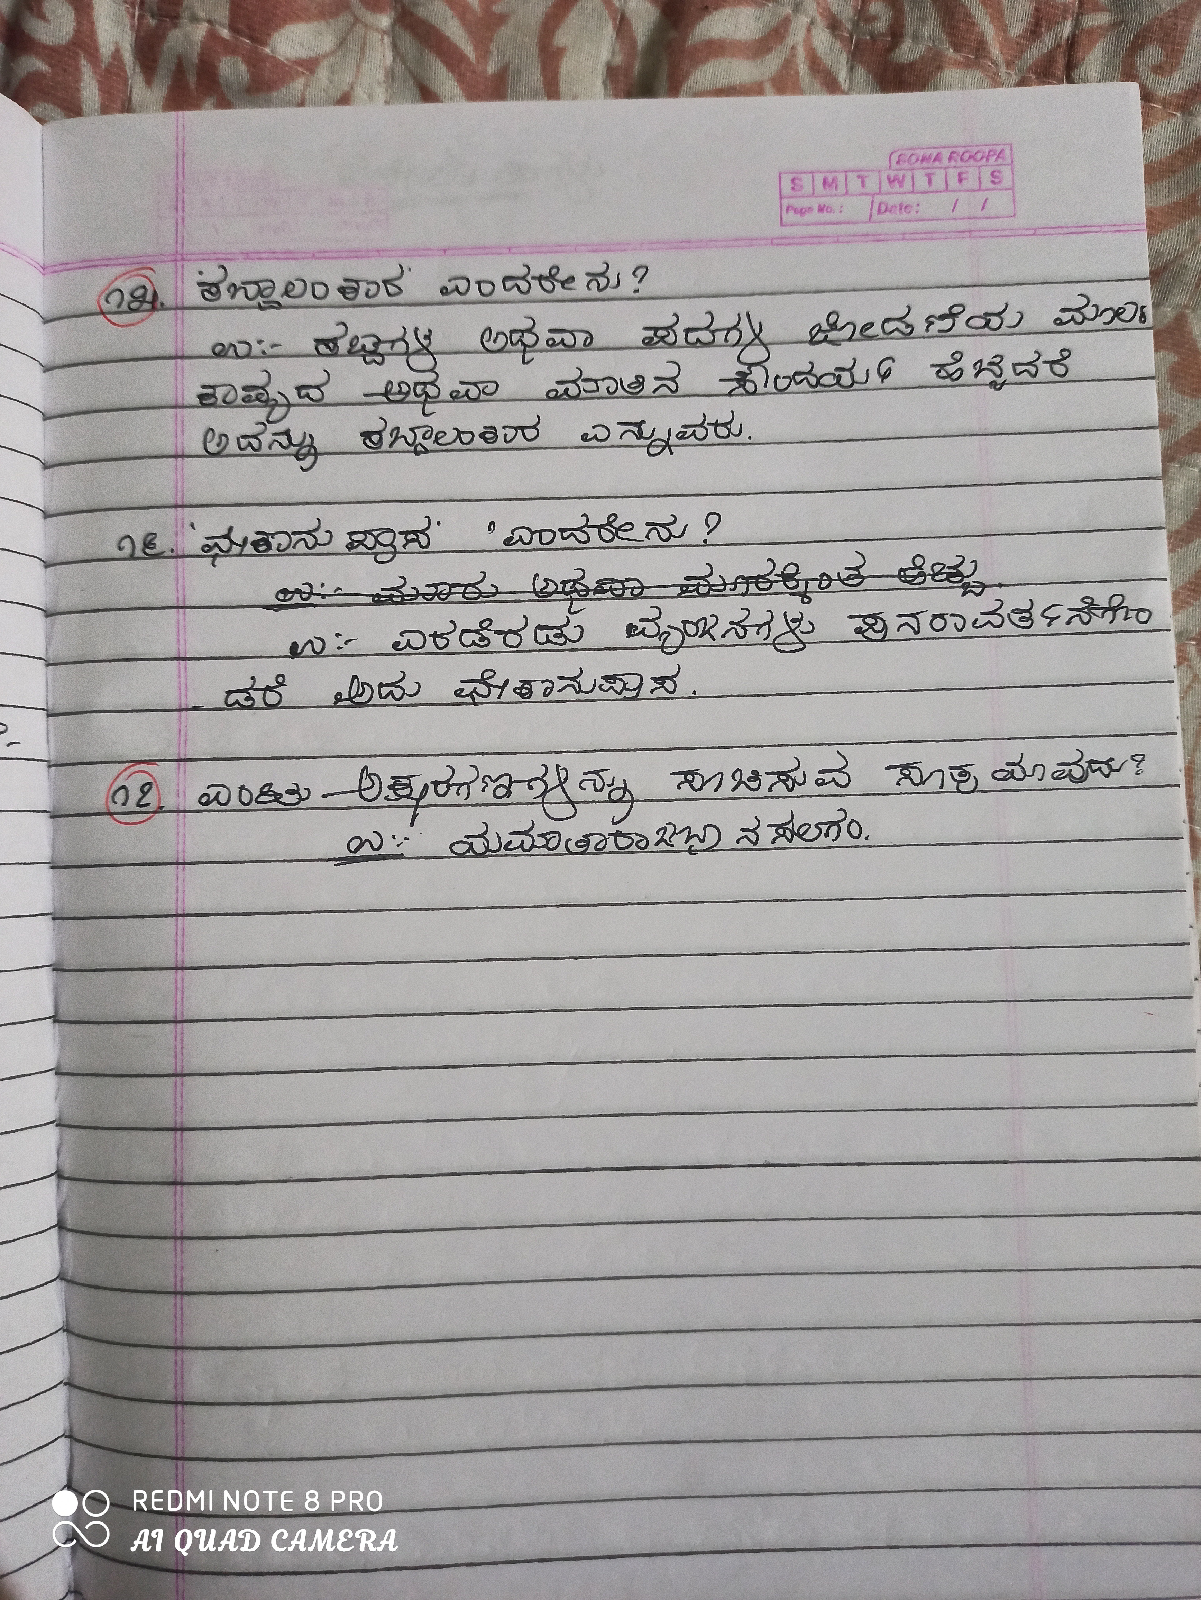 SONA ROOPA
S M T W T F S
Page No.: Date: / /
೧೫. 'ಶಬ್ದಾಲಂಕಾರ' ಎಂದರೇನು?
ಉ:- ಶಬ್ದಗಳ ಅಥವಾ ಪದಗಳ ಜೋಡಣೆಯ ಮೂಲಕ
ಕಾವ್ಯದ ಅಥವಾ ಮಾತಿನ ಸೌಂದರ್ಯ ಹೆಚ್ಚಿದರೆ
ಅದನ್ನು ಶಬ್ದಾಲಂಕಾರ ಎನ್ನುವರು.
೧೬. 'ಛೇಕಾನುಪ್ರಾಸ' 'ಎಂದರೇನು?
ಉ:- ಮೂರು ಅಥವಾ ಮೂರಕ್ಕಿಂತ ಹೆಚ್ಚು
ಉ:- ಎರಡೆರಡು ವ್ಯಂಜನಗಳು ಪುನರಾವರ್ತನೆಗೊಂ
ಡರೆ ಅದು ಛೇಕಾನುಪ್ರಾಸ.
೧೭. ಎಂಟು ಅಕ್ಷರಗಣಗಳನ್ನು ಸೂಚಿಸುವ ಸೂತ್ರ ಯಾವುದು?
ಉ:- ಯಮಾತಾರಾಜಭಾನಸಲಗಂ.
REDMI NOTE 8 PRO
AI QUAD CAMERA